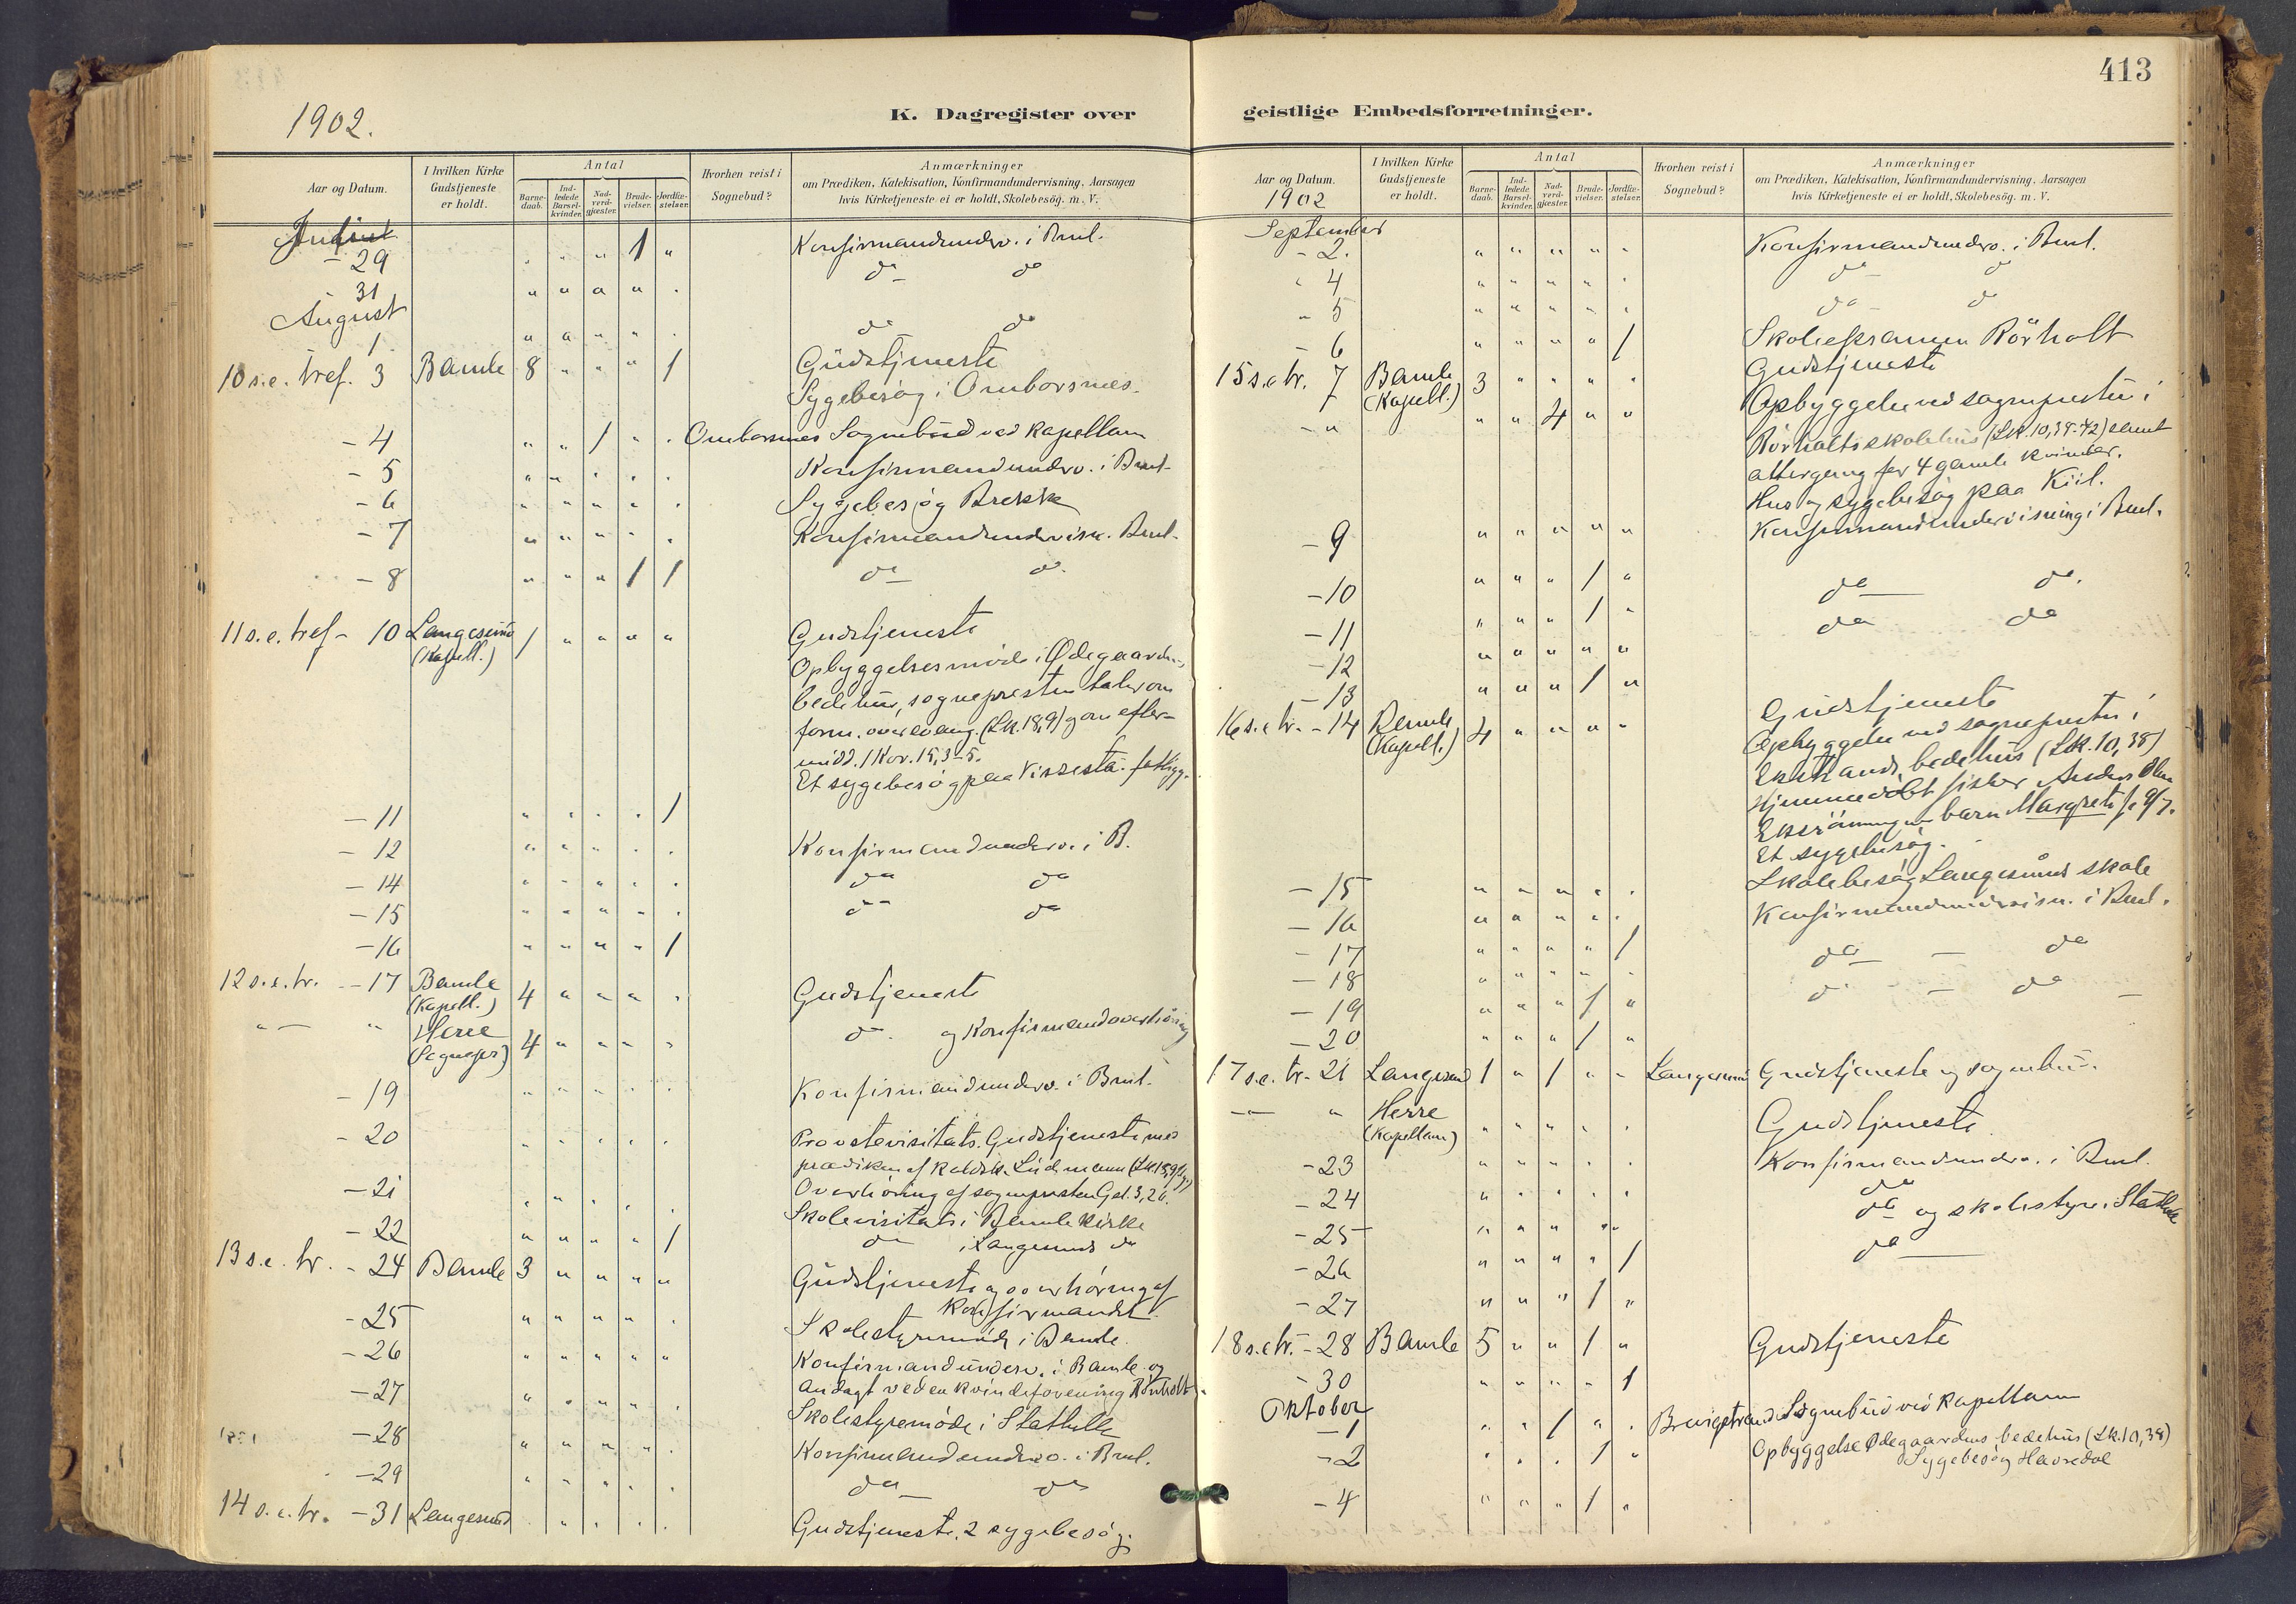 1902.
K. Dagregister over
Aar og Datum.
I hvilken Kirke Gudstjeneste er holdt.
Antal
Barne-daab.
Ind-ledede Barsel-kvinder.
Nad-verd-gjæster.
Brude-vielser.
Jordfæ-stelser.
Hvorhen reist i Sognebud?
Anmærkninger
om Prædiken, Katekisation, Konfirmandundervisning, Aarsagen
hvis Kirketjeneste ei er holdt, Skolebesøg. m. V.
- 29 " " " 1 " Konfirmandunderv. i Brul.
31 " " " " " do do
August
1 " " " " " do do
10 s.e. tref. 3 Bamle 8 " " " 1 Gudstjeneste
Sygebesøg i Omborsnes.
- 4 " " 1 " " Omborsnes Sognebud ved Kapellan
- 5 " " " " " Konfirmandunderv. i Brul.
- 6 " " " " " Sygebesøg Brekka
- 7 " " " " " Konfirmandundervisn. Brul.
- 8 " " " 1 1 do do
11 s.e. tref - 10 Langesund (Kapell.) 1 " " " " Gudstjeneste
Opbyggelsesmøde i Ødegaardens
bedehus, sognepresten taler om
form. over evang. (Lk. 18,9) g om efter-
midd. 1 Kor. 15,3-5.
Et sygebesøg paa Vissestad fattigg.
- 11 " " " " 1
- 12 " " " " " Konfirmandunderv. i B.
- 14 " " " " " do do
- 15 " " " " " do do
- 16 " " " " 1
12 s.e. tr. - 17 Bamle (Kapell.) 4 " " " " Gudstjeneste
" - " Herre (Sognepr) 4 " " " " do og Konfirmandoverhøring
- 19 " " " " " Konfirmandunderv. i Brul.
- 20 " " " " " Provstevisitats. Gudstjeneste med
prædiken af Lüdemann (Lk. 18,9
- 21 " " " " Overhøring af sognepresten Gal. 3,26.
Skolevisitats i Bamle Kirke
- 22 " " " " 1 do i Langesunds do
13 s.e. tr. - 24 Bamle 3 " " " " Gudstjeneste og overhøring af
Konfirmander
- 25 " " " " " Skolestyremøde i Bamle.
- 26 " " " " " Konfirmandunderv. i Bamle og
Andagt ved en kvindeforening Rörholt.
- 27 " " " " " Skolestyremøde i Stathelle
- 28 " " " " " Konfirmandunderv. i Brul.
- 29 " " " " " do do
14 s.e. tr. - 31 Langesund " " " " Gudstjeneste. 2 sygebesøg.
413
geistlige Embedsforretninger.
Aar og Datum.
1902
I hvilken Kirke Gudstjeneste er holdt.
Antal
Barne-daab.
Ind-ledede Barsel-kvinder.
Nad-verd-gjæster.
Brude-vielser.
Jordfæ-stelser.
Hvorhen reist i Sognebud?
Anmærkninger
om Prædiken, Katekisation, Konfirmandundervisning, Aarsagen
hvis Kirketjeneste ei er holdt, Skolebesøg. m. V.
September
- 2. " " " " " Konfirmandunderv. i Brul.
" 4 " " " " " do do
" 5 " " " " " do do
- 6 " " " " 1 Skoleeksamen Rörholt
15 s.e tr. 7 Bamle (Kapell.) 3 " " " " Gudstjeneste
- " " " 4 " " Opbyggelse ved sognepresten i
Rörholts skolehus (Lk. 10,38-42) samt
altergang for 4 gamle kvinder.
Hus og sygebesøg paa Kiil.
- 9 " " " " " Konfirmandundervisning i Brul.
- 10 " " " 1 " do do.
- 11 " " " 1 " do do
- 12 " " " " "
- 13 " " " 1 "
16 s.e tr. - 14 Bamle (Kapell.) 4 " " " " Gudstjeneste
Opbyggelse ved sognepresten i
Ekstrands bedehus (Lk. 10,38)
Hjemmedøbt fisker Anders Olsen
barn Margrete f. 9/7.
Et sygebesøg.
- 15 " " " " " Skolebesøg Langesunds skole
- 16 " " " " " Konfirmandundervisn. i Brul.
- 17 " " " " 1 do - do
- 18 " " " " " do - do -
- 19 " " " 1 "
- 20 " " " 1 "
17 s.e. tr. - 21 Langesund 1 " 1 " " Langesund Gudstjeneste og sognebud.
- " - " Herre (Kapellan) " " " " " Gudstjeneste
- 23 " " " " " Konfirmandunderv. i Brul.
- 24 " " " " " do
- 25 " " " " " do og skolestyre i Stathelle
- 26 " " " " 1 do
- 27 " " " 1 "
18 s.e tr. - 28 Bamle 5 " " 1 " Gudstjeneste
- 30 " " " " 1
Oktober
- 1 " " 1 " " Brevigstrand Sognebud ved Kapellan
- 2 " " " 1 " Opbyggelse Ødegaardens bedehus (Lk. 10,38)
Sygebesøg Havredal
- 4 " " " 1 "